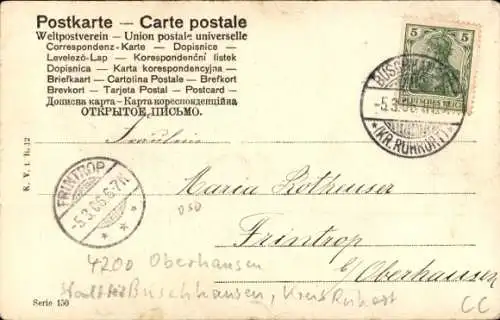 Postkarte — Carte postale
Weltpostverein — Union postale universelle
Correspondenz-Karte — Dopisnice
Levelező-Lap — Korespondenční lístek
Dopisnica — Karta korespondencyjna —
Briefkaart — Cartolina Postale — Brefkort
Brevkort — Tarjeta Postal — Postcard —
Дописна карта — Карта кореспонденцiйна
ОТКРЫТОЕ ПИСЬМО.
5 5
DEUTSCHES REICH
-5.3.06.
*(KR. RUHRORT)*
Fräulein
FRINTROP
-5.3.06.6-7N
* * *
Maria Rothenser
050
Frintrop
b/Oberhausen
4200 Oberhausen
Buschhausen, Kreis Ruhrort
CC
Serie 150